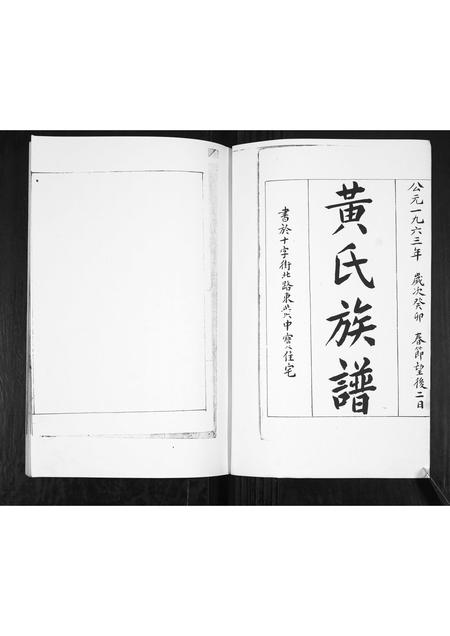 公元一九六三年 歲次癸卯 春節望後二日
黃氏族譜
書於十字街北路東 申 住宅